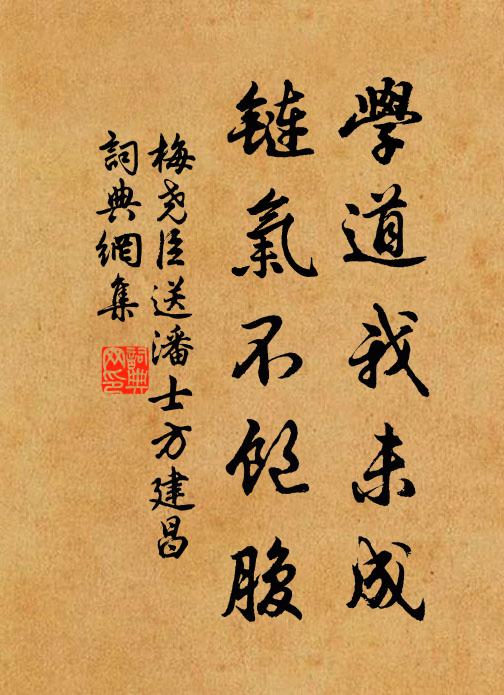 學道我未成
鏈氣不飽腹
梅堯臣送潘士方建昌
詞典網集
詞典
网印